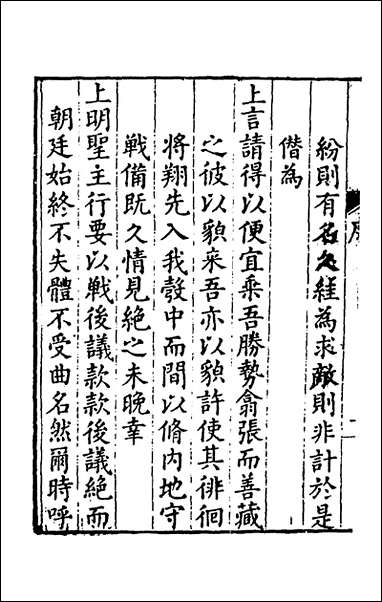 紛則有名久經為求敵則非計於是
僭為
上言請得以便宜乘吾勝勢翕張而善藏
之彼以貌來吾亦以貌許使其徘徊
将翔先入我彀中而間以脩内地守
戦備既久情見絶之未晚幸
上明聖主行要以戦後議款款後議絶而
朝廷始終不失體不受曲名然爾時呼